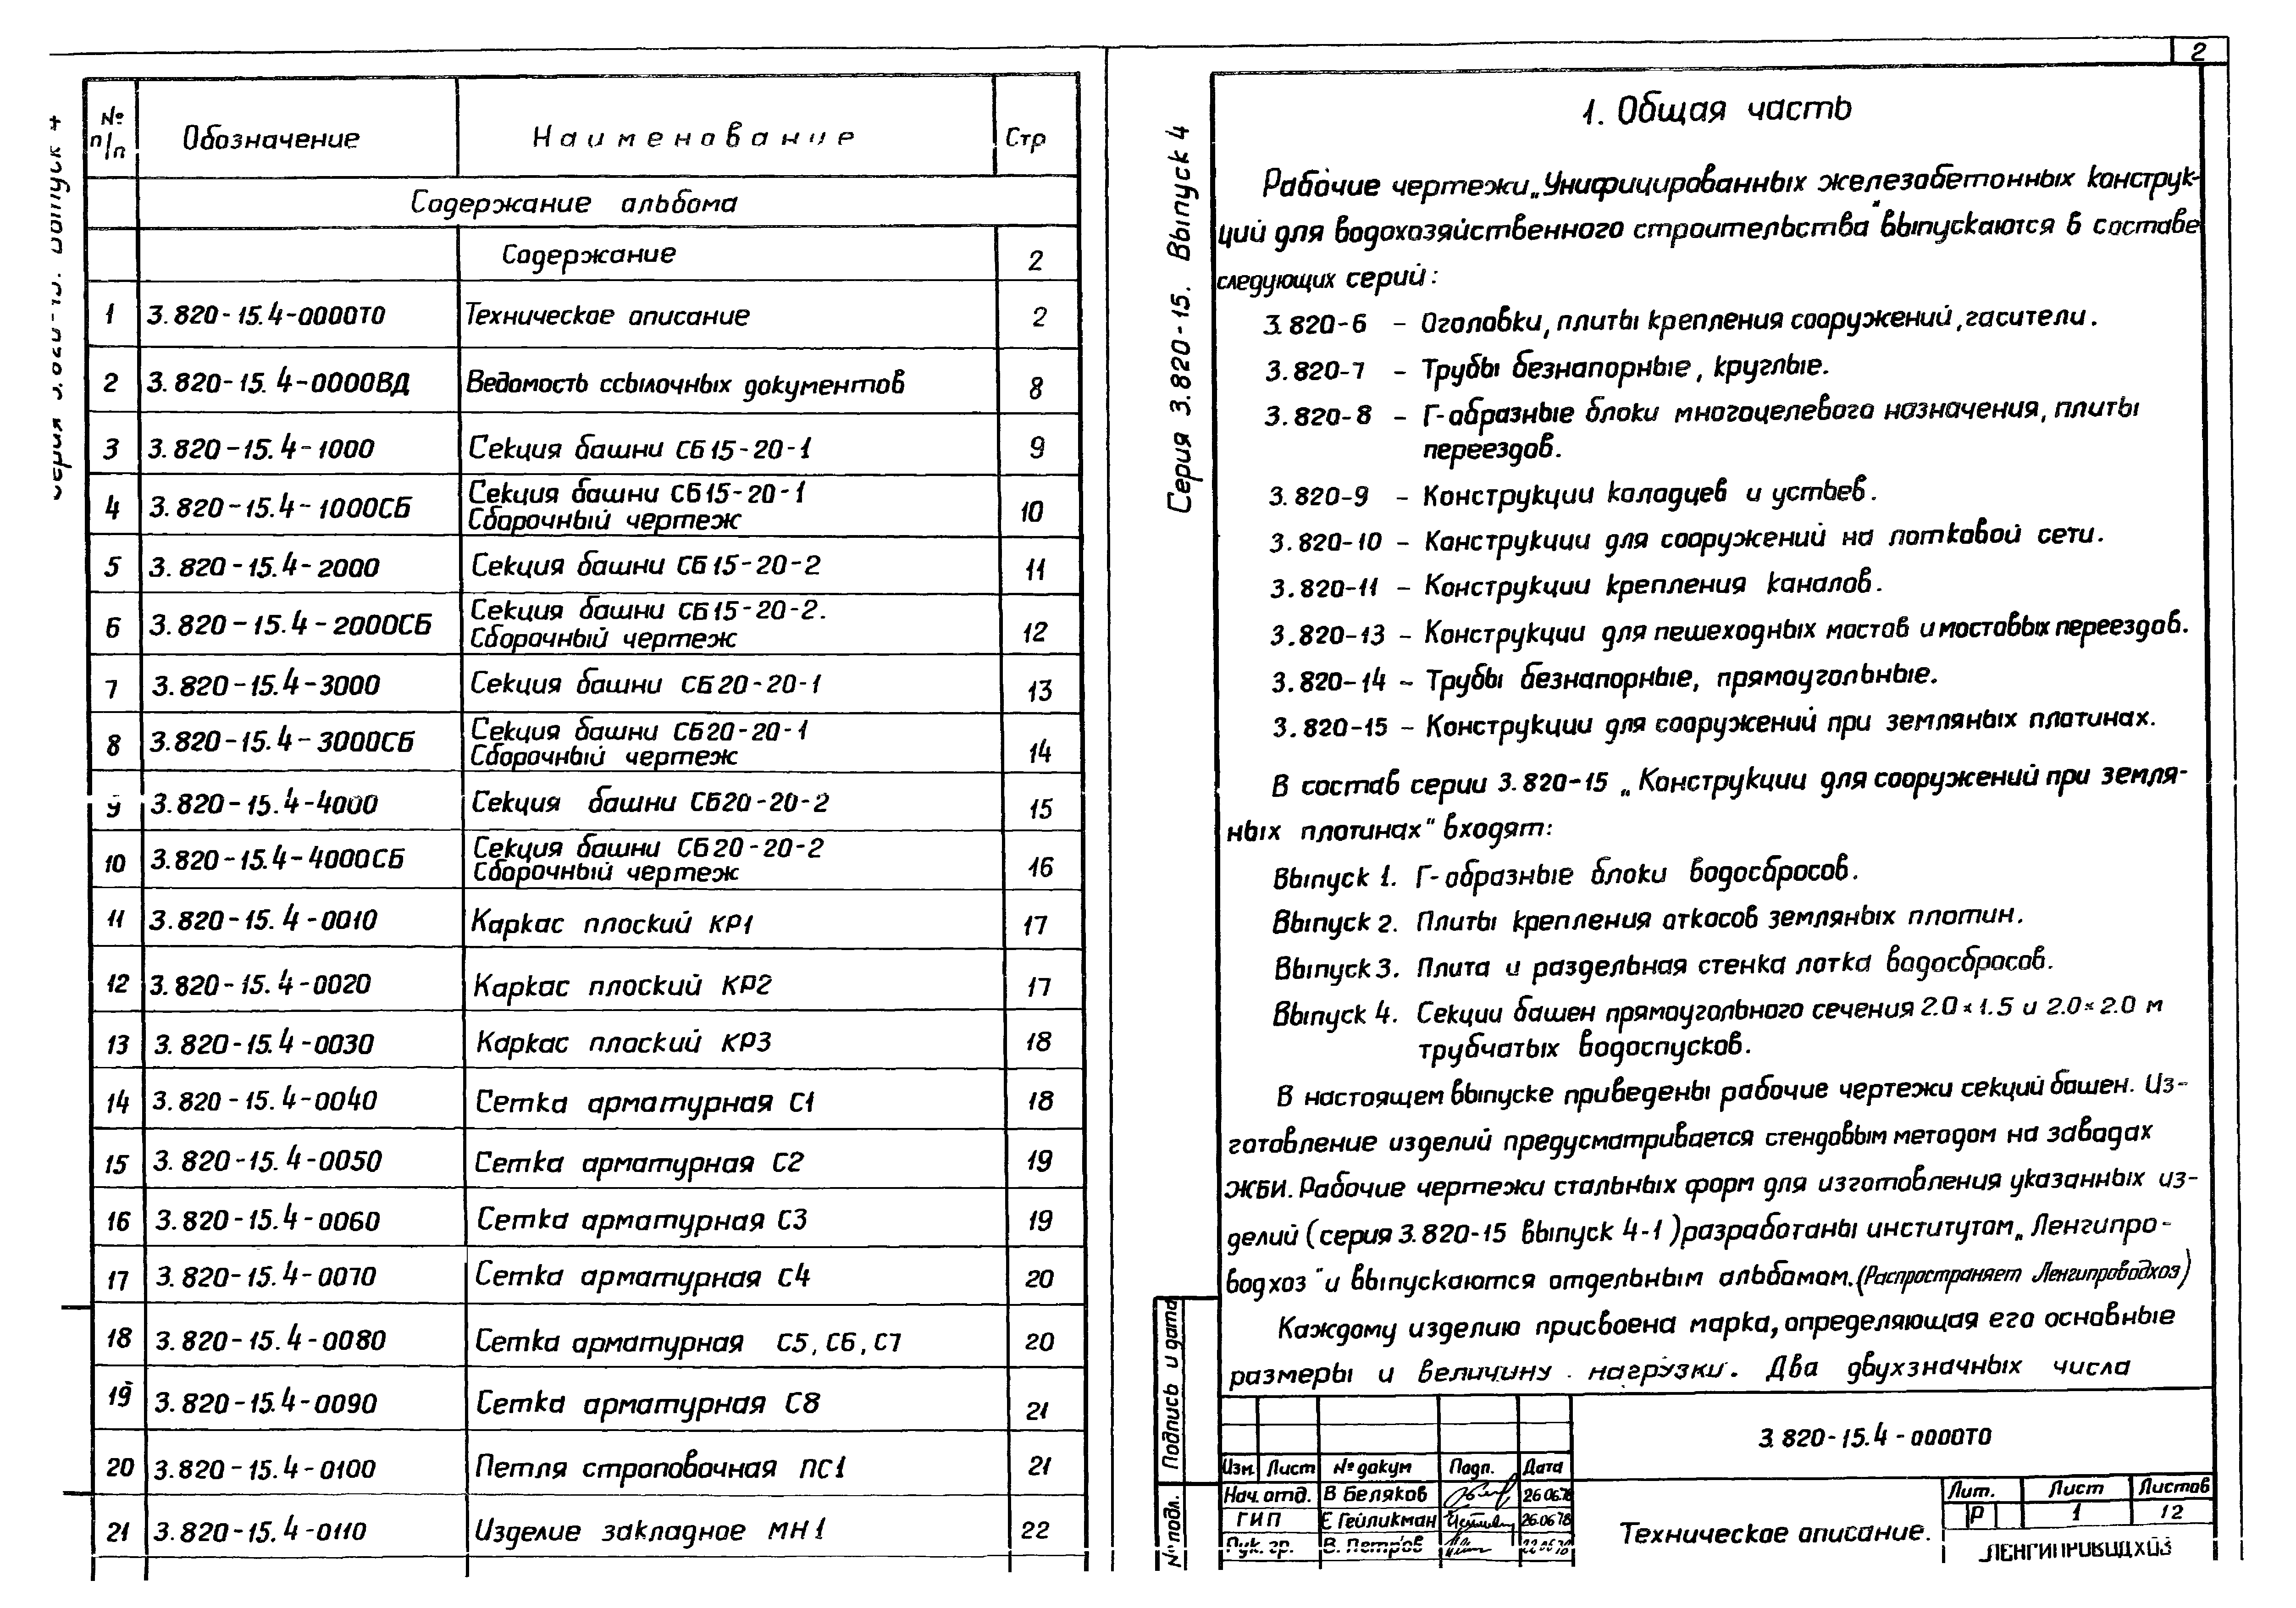 № п/п Обозначение Наименование Стр
Содержание альбома
Содержание 2
1 3.820-15.4-0000ТО Техническое описание 2
2 3.820-15.4-0000ВД Ведомость ссылочных документов 8
3 3.820-15.4-1000 Секция башни СБ15-20-1 9
4 3.820-15.4-1000СБ Секция башни СБ15-20-1
Сборочный чертеж 10
5 3.820-15.4-2000 Секция башни СБ15-20-2 11
6 3.820-15.4-2000СБ Секция башни СБ15-20-2.
Сборочный чертеж 12
7 3.820-15.4-3000 Секция башни СБ20-20-1 13
8 3.820-15.4-3000СБ Секция башни СБ20-20-1
Сборочный чертеж 14
9 3.820-15.4-4000 Секция башни СБ20-20-2 15
10 3.820-15.4-4000СБ Секция башни СБ20-20-2
Сборочный чертеж 16
11 3.820-15.4-0010 Каркас плоский КР1 17
12 3.820-15.4-0020 Каркас плоский КР2 17
13 3.820-15.4-0030 Каркас плоский КР3 18
14 3.820-15.4-0040 Сетка арматурная С1 18
15 3.820-15.4-0050 Сетка арматурная С2 19
16 3.820-15.4-0060 Сетка арматурная С3 19
17 3.820-15.4-0070 Сетка арматурная С4 20
18 3.820-15.4-0080 Сетка арматурная С5, С6, С7 20
19 3.820-15.4-0090 Сетка арматурная С8 21
20 3.820-15.4-0100 Петля строповочная ПС1 21
21 3.820-15.4-0110 Изделие закладное МН1 22
2
Серия 3.820-15. Выпуск 4
1. Общая часть
Рабочие чертежи „Унифицированных железобетонных конструк-
ций для водохозяйственного строительства" выпускаются в составе
следующих серий:
3.820-6 – Оголовки, плиты крепления сооружений, гасители.
3.820-7 – Трубы безнапорные, круглые.
3.820-8 – Г-образные блоки многоцелевого назначения, плиты
переездов.
3.820-9 – Конструкции колодцев и устьев.
3.820-10 – Конструкции для сооружений на лотковой сети.
3.820-11 – Конструкции крепления каналов.
3.820-13 – Конструкции для пешеходных мостов и мостовых переездов.
3.820-14 – Трубы безнапорные, прямоугольные.
3.820-15 – Конструкции для сооружений при земляных плотинах.
В состав серии 3.820-15 „Конструкции для сооружений при земля-
ных плотинах" входят:
Выпуск 1. Г-образные блоки водосбросов.
Выпуск 2. Плиты крепления откосов земляных плотин.
Выпуск 3. Плита и раздельная стенка лотка водосбросов.
Выпуск 4. Секции башен прямоугольного сечения 2.0×1.5 и 2.0×2.0 м
трубчатых водоспусков.
В настоящем выпуске приведены рабочие чертежи секций башен. Из-
готовление изделий предусматривается стендовым методом на заводах
ЖБИ. Рабочие чертежи стальных форм для изготовления указанных из-
делий (серия 3.820-15 выпуск 4-1) разработаны институтом „Ленгипро-
водхоз" и выпускаются отдельным альбомом. (Распространяет Ленгипроводхоз)
Каждому изделию присвоена марка, определяющая его основные
размеры и величину нагрузки. Два двухзначных числа
Подпись и дата
№ подл.
3.820-15.4-0000ТО
Изм. Лист № докум Подп. Дата
Нач. отд. В Беляков 26.06.78
ГИП Е Гейликман 26.06.78
Рук. гр. В. Петров
Техническое описание.
Лит. Лист Листов
Р 1 12
ЛЕНГИПРОВОДХОЗ